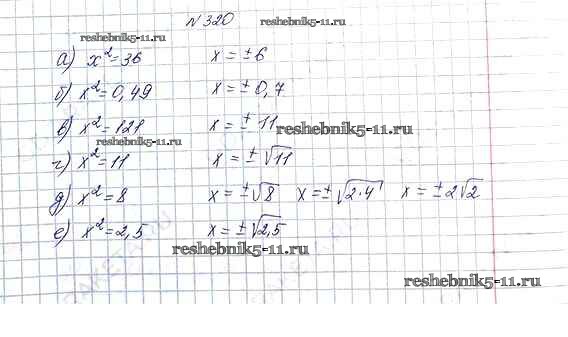 № 320 reshebnik5-11.ru
reshebnik5-11.ru
а) x²=36 x=±6
б) x²=0,49 x=±0,7
в) x²=121 x=±11 reshebnik5-11.ru
reshebnik5-11.ru
г) x²=11 x=±√11
д) x²=8 x=±√8 x=±√2·4 x=±2√2
е) x²=2,5 x=±√2,5
reshebnik5-11.ru
reshebnik5-11.ru